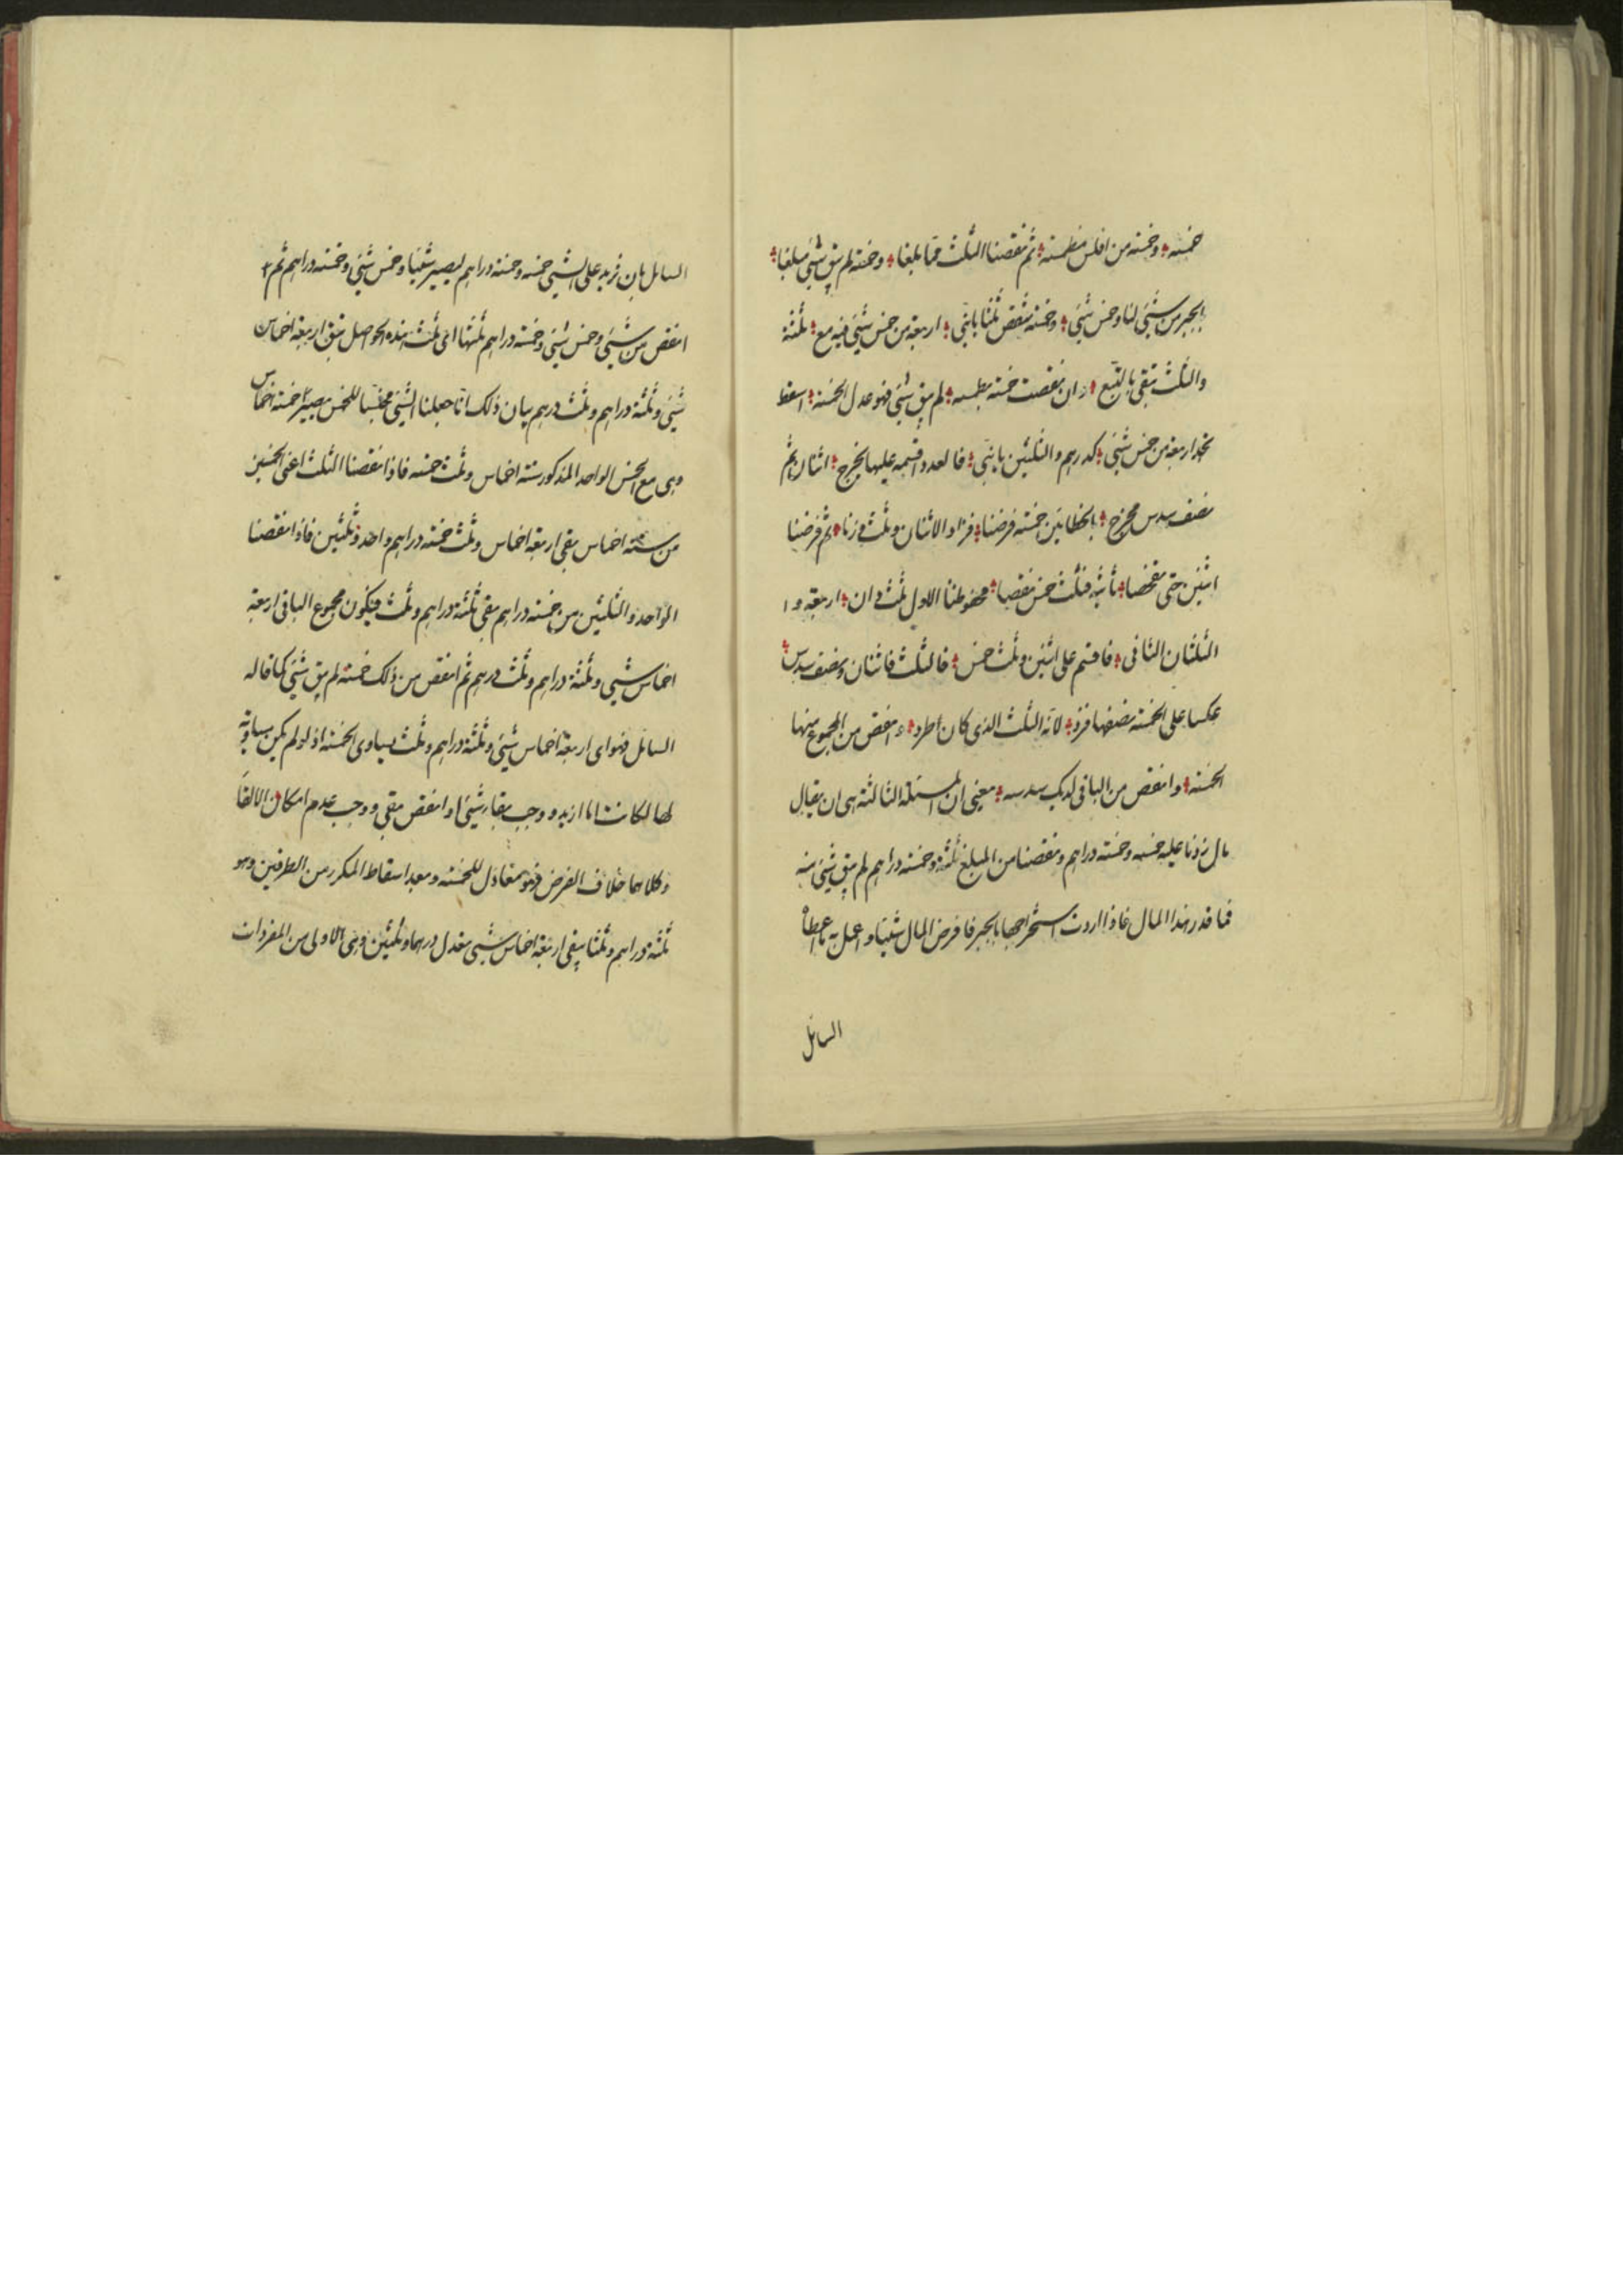 خمسه وخمسة من افلس مظمنة ثم نقصنا الثلث مما بلغا وخمسة لم يبق شيئ مبلغا
بالجبر من شيئ لنا وخمس شيئ وخمسة ننقص ثلثا يا بنی اربعة من خمس شيئ فيه مع ثلثة
والثلث تبقى بالتبع ان نقصت خمسة لم يبق شيئ فهو عدل الخمسة اسقط
تجد اربعة من خمس شيئ كدرهم والثلثين يا بنی فالعدد اقسمه عليها يخرج اثنان ثم
نصف سدس مخرج بالخطاين خمسة فرضنا فزاد الاثنان وثلث وزنا ثم فرضنا
اثنين حتى نقصا فثلث خمس نقصا محفوظنا الاول ثلث وان اربعة و ا
الثلثان الثانی فاقسم على اثنين وثلث خمس فالثلث فاثنان ونصف سدس
عكسا على الخمسة نصفها فزد لانه الثلث الذى كان طرد وانقص من المجموع منها
الخمسة وانقص من الباقی لديك سدسه معنى ان المسئلة الثالثة هى ان يقال
مال زدنا عليه خمسه وخمسة دراهم ونقصنا من المبلغ ثلثه وخمسة دراهم لم يبق شيئ منه
فما قدر هذا المال فاذا اردت استخراجها بالجبر فافرض المال شيئا واعمل به ما اعطاه
السائل
السائل بان نزيد على الشيئ خمسه وخمسة دراهم ليصير شيئا وخمس شيئ وخمسة دراهم ثم
انقص من شيئ وخمس شيئ وخمسة دراهم ثلثها اى ثلث هذه الحواصل تبق اربعة اخماس
شيئ وثلثة دراهم وثلث درهم بيان ذلك انا جعلنا الشيئ مخمسا للخمس يصير خمسة اخماس
وهى مع الخمس الواحد المذكور ستة اخماس وثلث خمسة فاذا نقصنا الثلث اعنى الخمسين
من ستة اخماس بقى اربعة اخماس وثلث خمسة دراهم واحد وثلثين فاذا نقصنا
الواحد والثلثين من خمسة دراهم بقى ثلثة دراهم وثلث فيكون مجموع الباقى اربعة
اخماس شيئ وثلثة دراهم وثلث درهم ثم انقص من ذلك خمسة لم يبق شيئ كما قاله
السائل فهو اى اربعة اخماس شيئ وثلثة دراهم وثلث يساوى الخمسة اذ لو لم يكن مساوية
لها لكانت اما ازيد ووجب بقاء شيئ او انقص بقى ووجب عدم امكان الالقاء
وكلاهما خلاف الفرض فهو معادل للخمسة وبعد اسقاط المكرر من الطرفين وهو
ثلثة دراهم وثلثا يبقى اربعة اخماس شيئ يعدل درهما وثلثين وهى الاولى من المفردات